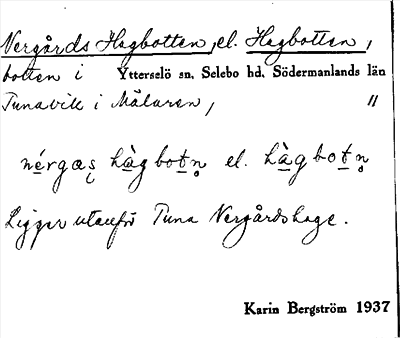 Nergårds Hagbotten, el. Hagbotten,
botten i Ytterselö sn, Selebo hd, Södermanlands län
Tunavik i Mälaren, "
nérgas hàgbotn el. hàgbotn
Ligger utanför Tuna Nergårdshage.
Karin Bergström 1937